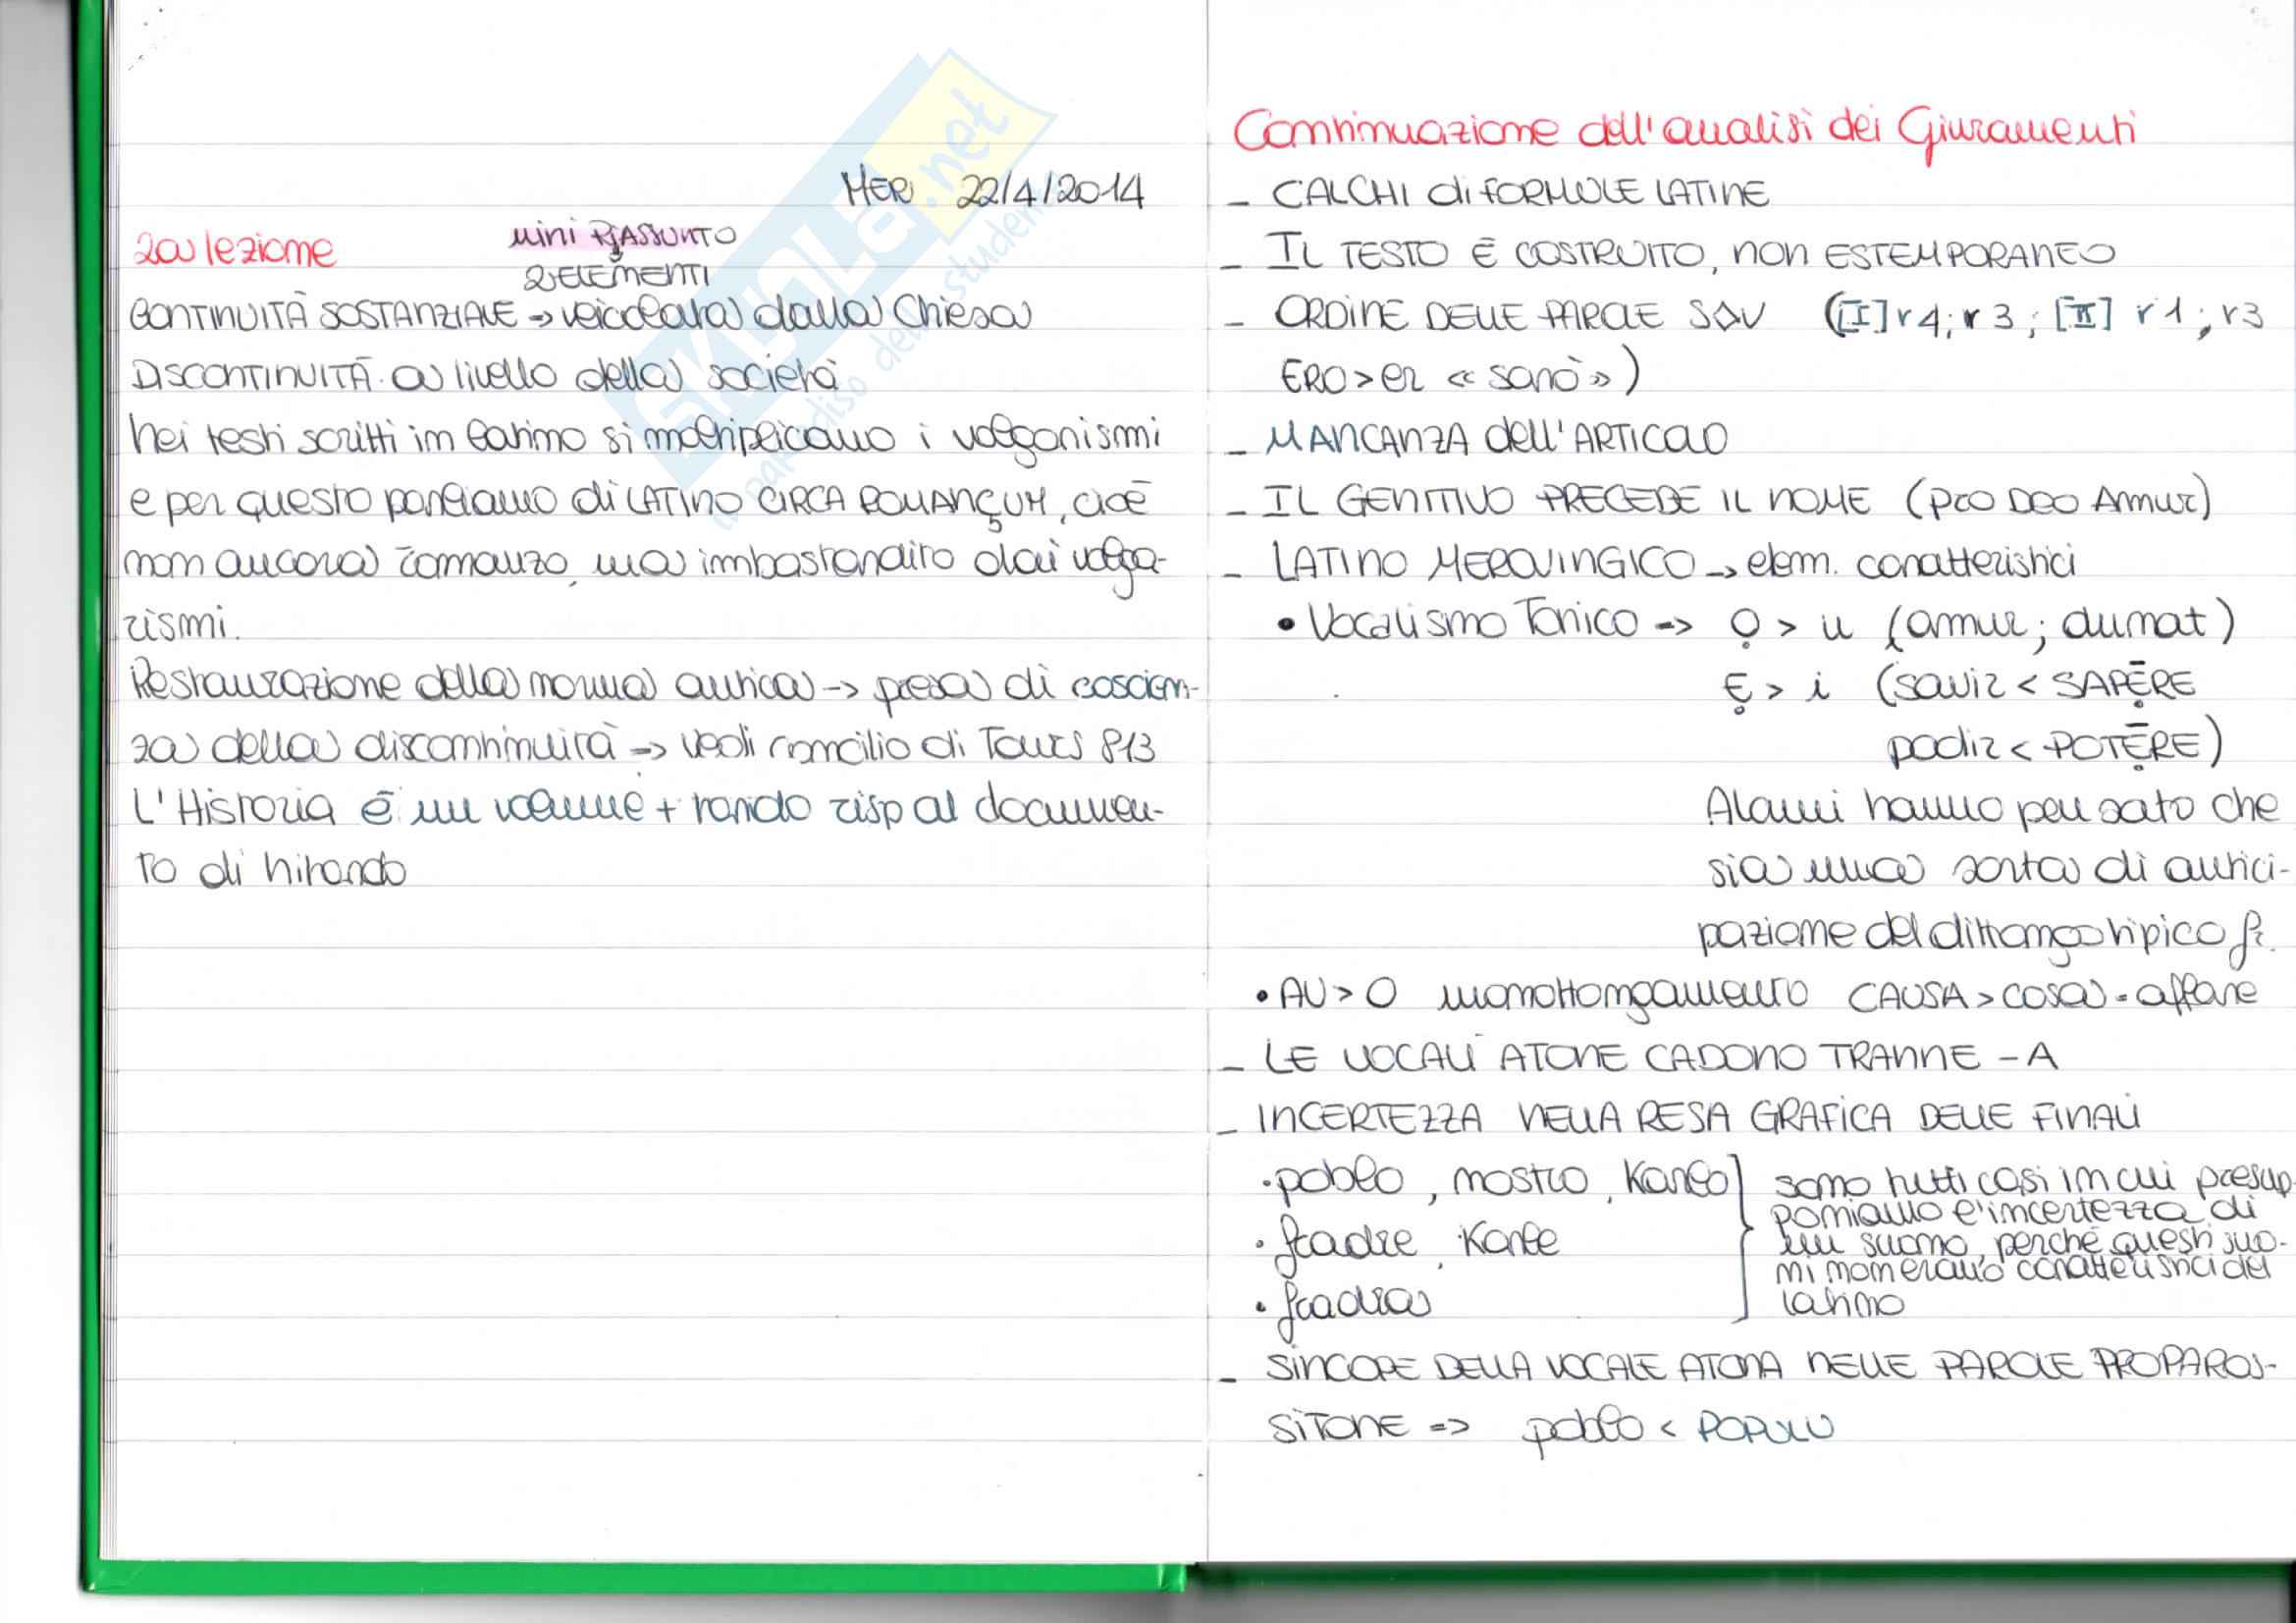 MER 22/4/2014
2a lezione
mini RIASSUNTO
2 ELEMENTI
CONTINUITÀ SOSTANZIALE → veicolata dalla Chiesa
DISCONTINUITÀ a livello della società
Nei testi scritti in latino si moltiplicano i volgarismi
e per questo parliamo di LATINO CIRCA ROMANÇUM, cioè
non ancora romanzo, ma imbastardito dai volga-
rismi.
Restaurazione della norma antica → presa di coscien-
za della discontinuità → vedi concilio di Tours 813
L'Historia è un volume + tardo risp al documen-
to di Nitardo
SKUOLA.net
il paradiso dello studente
Continuazione dell'analisi dei Giuramenti
- CALCHI di FORMULE LATINE
- IL TESTO È COSTRUITO, non ESTEMPORANEO
- ORDINE DELLE PAROLE SOV ([I] r4; r3; [II] r1; r3
ERO > er «sarò»)
- MANCANZA dell'ARTICOLO
- IL GENITIVO PRECEDE IL NOME (pro DEO Amur)
- LATINO MEROVINGICO → elem. caratteristici
• Vocalismo Tonico → Ọ > u (amur; dunat)
Ẹ > i (savir < SAPĒRE
podir < POTĒRE)
Alcuni hanno pensato che
sia una sorta di antici-
pazione del dittongo tipico fr.
• AU > O monottongamento CAUSA > cosa = affare
- LE VOCALI ATONE CADONO TRANNE -A
- INCERTEZZA NELLA RESA GRAFICA DELLE FINALI
• poblo, nostro, Karlo
• fradre, Karle
• fradra
sono tutti casi in cui presup-
poniamo l'incertezza di
un suono, perché questi suo-
ni non erano caratteristici del
latino
- SINCOPE DELLA VOCALE ATONA NELLE PAROLE PROPAROS-
SITONE => poblo < POPULU